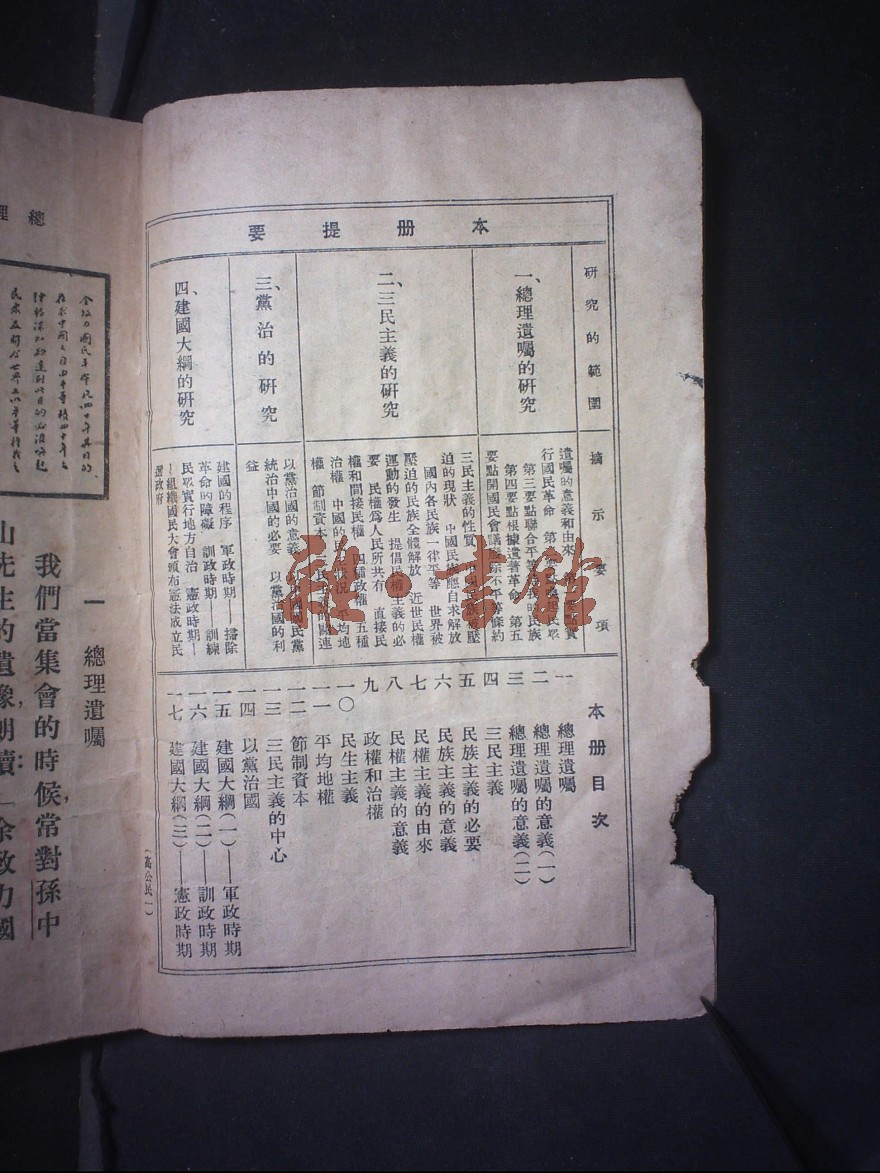 本册提要
研究的範圍
一、總理遺囑的研究
二、三民主義的研究
三、黨治的研究
四、建國大綱的研究
摘示要項
遺囑的意義和由來
行國民革命
第三要點聯合平等待我的民族
第四要點根據遺著革命 第五
要點開國民會議廢除不平等條約
三民主義的性質
迫的現狀 中國民族應自求解放
國內各民族一律平等 世界被
壓迫的民族全體解放 近世民權
運動的發生 提倡民權主義的必
要 民權爲人民所共有 直接民
權和間接民權 四種政權 五種
治權 中國的民
權 節制資本
以黨治國的意義
統治中國的必要 以黨治國的利
益
建國的程序 軍政時期——掃除
革命的障礙 訓政時期——訓練
民眾實行地方自治 憲政時期—
—組織國民大會頒布憲法成立民
選政府
本册目次
一 總理遺囑
二 總理遺囑的意義(一)
三 總理遺囑的意義(二)
四 三民主義
五 民族主義的必要
六 民族主義的意義
七 民權主義的由來
八 民權主義的意義
九 政權和治權
一〇 民生主義
一一 平均地權
一二 節制資本
一三 三民主義的中心
一四 以黨治國
一五 建國大綱(一)——軍政時期
一六 建國大綱(二)——訓政時期
一七 建國大綱(三)——憲政時期
(高公民一)
總理
余致力國民革命凡四十年其目的
在求中國之自由平等積四十年之
經驗深知欲達到此目的必須喚起
民眾及聯合世界上以平等待我之
一 總理遺囑
我們當集會的時候,常對孫中
山先生的遺像,朗讀:「余致力國
雅·書館